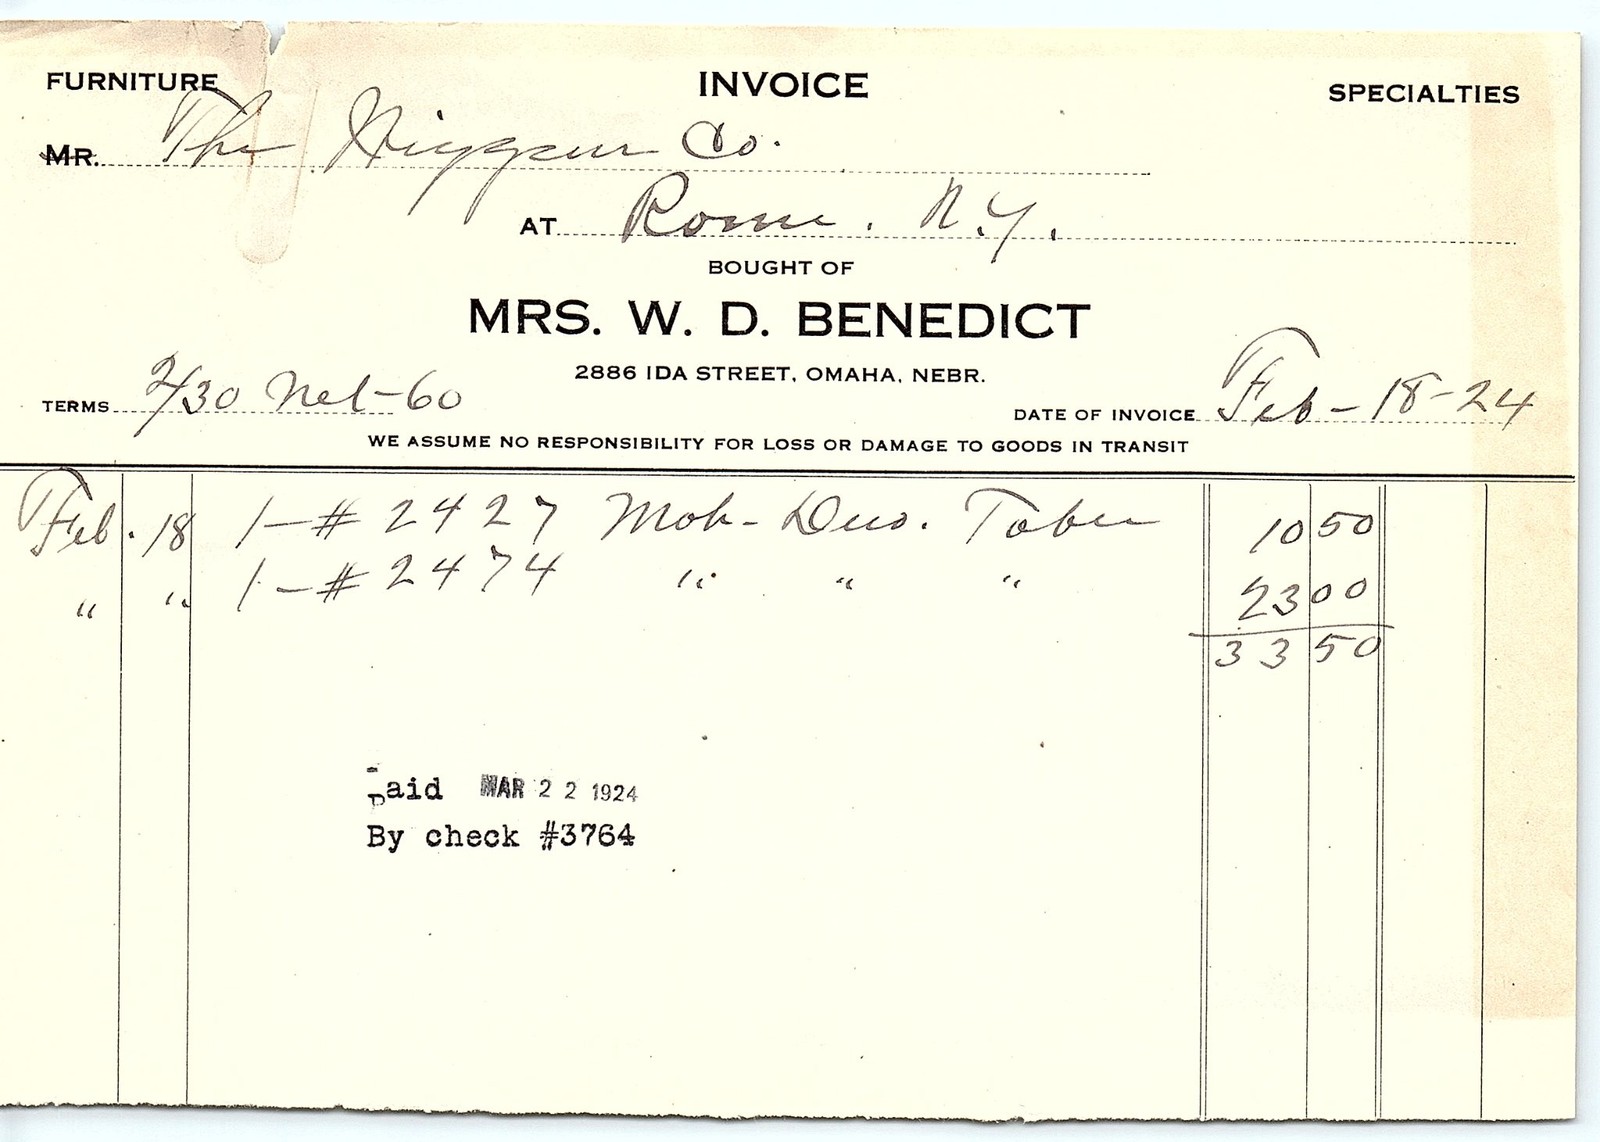 FURNITURE INVOICE SPECIALTIES
MR. The Co.
AT Rome. N.Y.
BOUGHT OF
MRS. W. D. BENEDICT
2886 IDA STREET, OMAHA, NEBR.
TERMS 2/30 Net-60 DATE OF INVOICE Feb-18-24
WE ASSUME NO RESPONSIBILITY FOR LOSS OR DAMAGE TO GOODS IN TRANSIT
Feb. 18 1-#2427 Duo. 10 50
" " 1-#2474 " " " 23 00
33 50
Paid MAR 22 1924
By check #3764